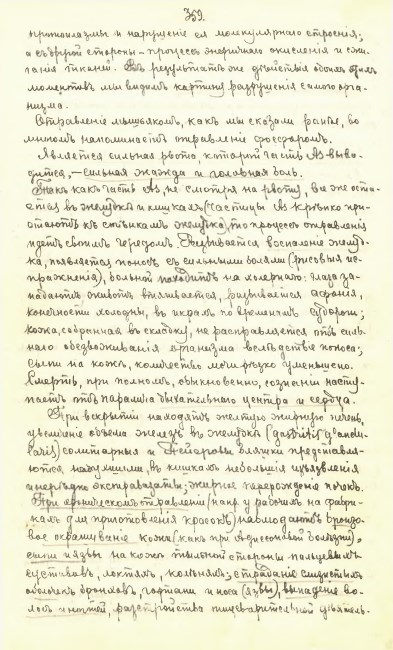 359.
протоплазмы и нарушенiе ея молекулярнаго строенiя;
а съ другой стороны – процессъ энергичнаго окисленiя и сжи-
ганiя тканей. Въ результатѣ же дѣйствiя обоихъ этихъ
моментовъ мы видимъ картину разрушенiя самого орга-
низма.
Отравленiе мышьякомъ, какъ мы сказали ранѣе, во
многомъ напоминаетъ отравленiе фосфоромъ.
Является сильная рвота, которой часть As выво-
дится, – сильная жажда и головная боль.
Такъ какъ часть As, не смотря на рвоту, все же оста-
ется въ желудкѣ и кишкахъ (частицы As крѣпко при-
стаютъ къ стѣнкамъ желудка), то процессъ отравленiя
идетъ своимъ чередомъ. Развивается воспаленiе желуд-
ка, появляется поносъ съ сильными болями (рисовыя ис-
пражненiя), больной походитъ на холернаго: глаза за-
падаютъ, животъ втягивается, развивается афонiя,
конечности холодны, въ икрахъ по временамъ судороги;
кожа, собранная въ складку, не расправляется отъ силь-
наго обезвоживанiя организма вслѣдствiе поноса;
сыпи на кожѣ, количество мочи рѣзко уменьшено.
Смерть, при полномъ, обыкновенно, сознанiи насту-
паетъ отъ паралича дыхательнаго центра и сердца.
При вскрытiи находятъ желтую жирную печень,
увеличенiе объема железъ въ желудкѣ (gastritis glandu-
laris) солитарныя и Пейеровы бляшки представля-
ются набухшими, въ кишкахъ небольшiя изъязвленiя
и нерѣдко экстравазаты; жирное перерожденiе почекъ.
При хроническомъ отравленiи (напр. у рабочихъ на фабри-
кахъ для приготовленiя красокъ) наблюдаютъ бронзо-
вое окрашиванiе кожи (какъ при Адиссоновой болѣзни),
сыпи и язвы на кожѣ тыльной стороны пальцевыхъ
суставовъ, локтяхъ, колѣняхъ; страданiе слизистыхъ
оболочекъ бронховъ, гортани и носа (язвы), выпаденiе во-
лосъ и ногтей, разстройства пищеварительной дѣятель-